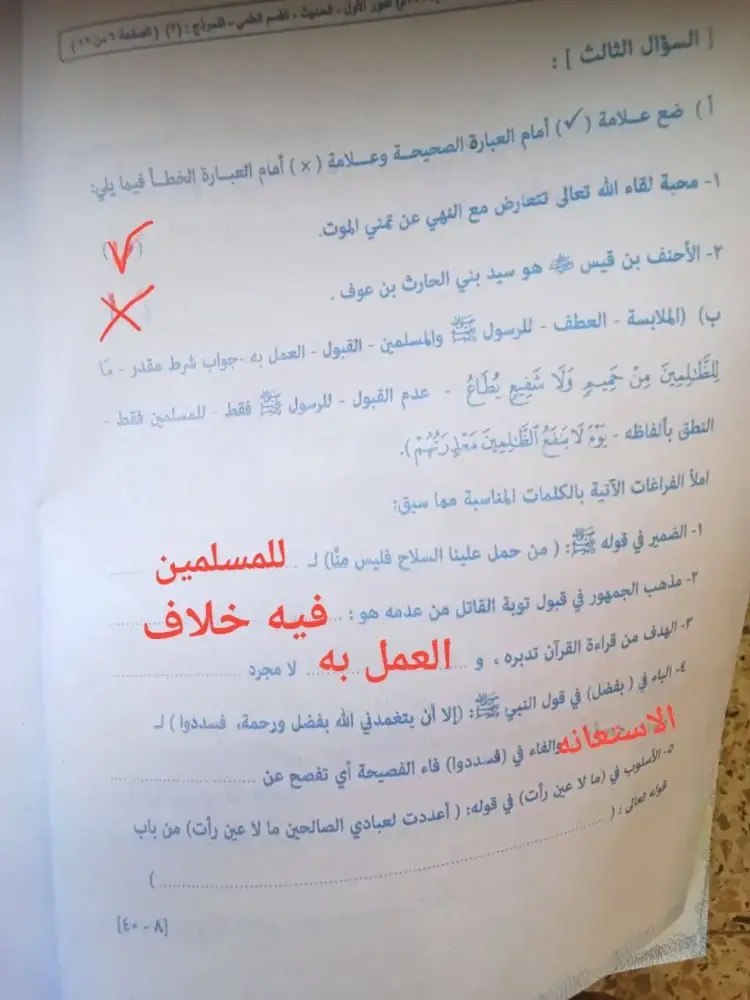 الدور الأول - الحديث - القسم العلمي - النموذج : (٢) ( الصفحة ٦ من ٢٦ )
[ السؤال الثالث ] :
أ ) ضع علامة ( ✓ ) أمام العبارة الصحيحة وعلامة ( × ) أمام العبارة الخطأ فيما يلي:
١- محبة لقاء الله تعالى تتعارض مع النهي عن تمني الموت. ( ✓ )
٢- الأحنف بن قيس ﷺ هو سيد بني الحارث بن عوف . ( × )
ب) (الملابسة - العطف - للرسول ﷺ والمسلمين - القبول - العمل به -جواب شرط مقدر - مَا
لِلظَّالِمِينَ مِنْ حَمِيمٍ وَلَا شَفِيعٍ يُطَاعُ - عدم القبول - للرسول ﷺ فقط - للمسلمين فقط -
النطق بألفاظه - يَوْمَ لَا يَنفَعُ الظَّالِمِينَ مَعْذِرَتُهُمْ ).
املأ الفراغات الآتية بالكلمات المناسبة مما سبق:
١- الضمير في قوله ﷺ: ( من حمل علينا السلاح فليس مِنَّا) لـ للمسلمين
٢- مذهب الجمهور في قبول توبة القاتل من عدمه هو : فيه خلاف
٣- الهدف من قراءة القرآن تدبره ، و العمل به لا مجرد
٤- الباء في ( بفضل) في قول النبي ﷺ: (إلا أن يتغمدني الله بفضل ورحمة، فسددوا ) لـ
الاستعانه والفاء في (فسددوا) فاء الفصيحة أي تفصح عن
٥- الأسلوب في (ما لا عين رأت) في قوله: ( أعددت لعبادي الصالحين ما لا عين رأت) من باب
قوله تعالى : ( )
[٨ - ٤٠]